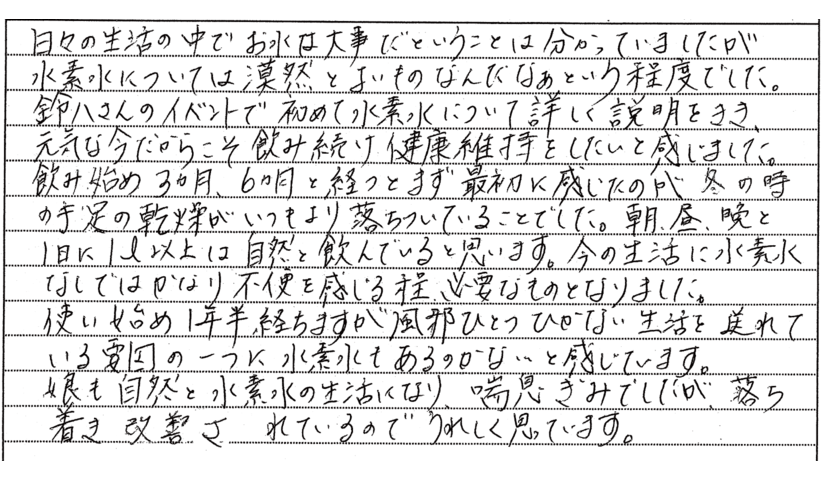 日々の生活の中でお水は大事だということは分かっていましたが
水素水については漠然とよいものなんだなぁという程度でした。
鈴八さんのイベントで初めて水素水について詳しく説明をきき、
元気な今だからこそ飲み続け健康維持をしたいと感じました。
飲み始め3ヵ月、6ヵ月と経つとまず最初に感じたのが冬の時
の手足の乾燥がいつもより落ちついていることでした。朝、昼、晩と
1日に1ℓ以上は自然と飲んでいると思います。今の生活に水素水
なしではかなり不便を感じる程、必要なものとなりました。
使い始め1年半経ちますが風邪ひとつひかない生活を送れて
いる要因の一つに水素水もあるのかな…と感じています。
娘も自然と水素水の生活になり、喘息ぎみでしたが、落ち
着き改善されているのでうれしく思っています。